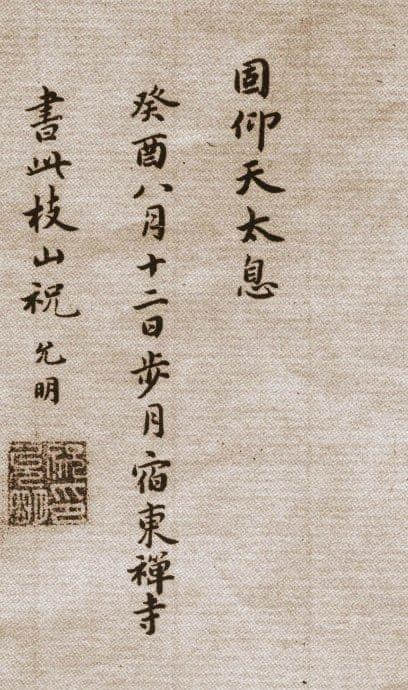 固仰天太息
癸酉八月十二日步月宿東禪寺
書此枝山祝允明